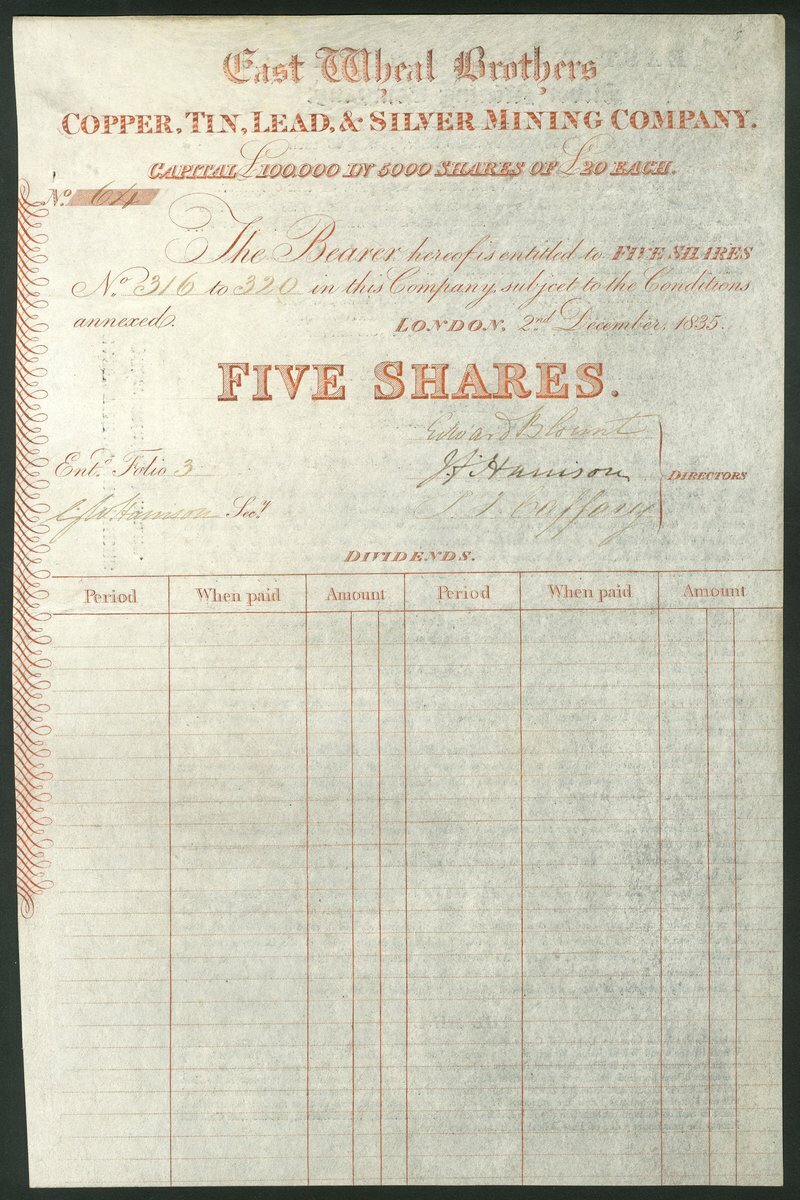 East Wheal Brothers
COPPER, TIN, LEAD, & SILVER MINING COMPANY.
CAPITAL £100.000 IN 5000 SHARES OF £20 EACH.
No. 64
The Bearer hereof is entitled to FIVE SHARES
No. 316 to 320 in this Company, subject to the Conditions
annexed.
LONDON, 2nd December, 1835.
FIVE SHARES.
Edward Blount
Entd. Folio 3
J. Harrison
DIRECTORS
Harrison Secy.
DIVIDENDS.
Period When paid Amount Period When paid Amount